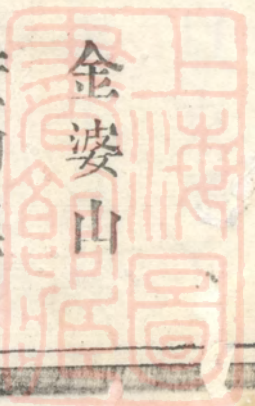 金婆山
上海圖
書館藏